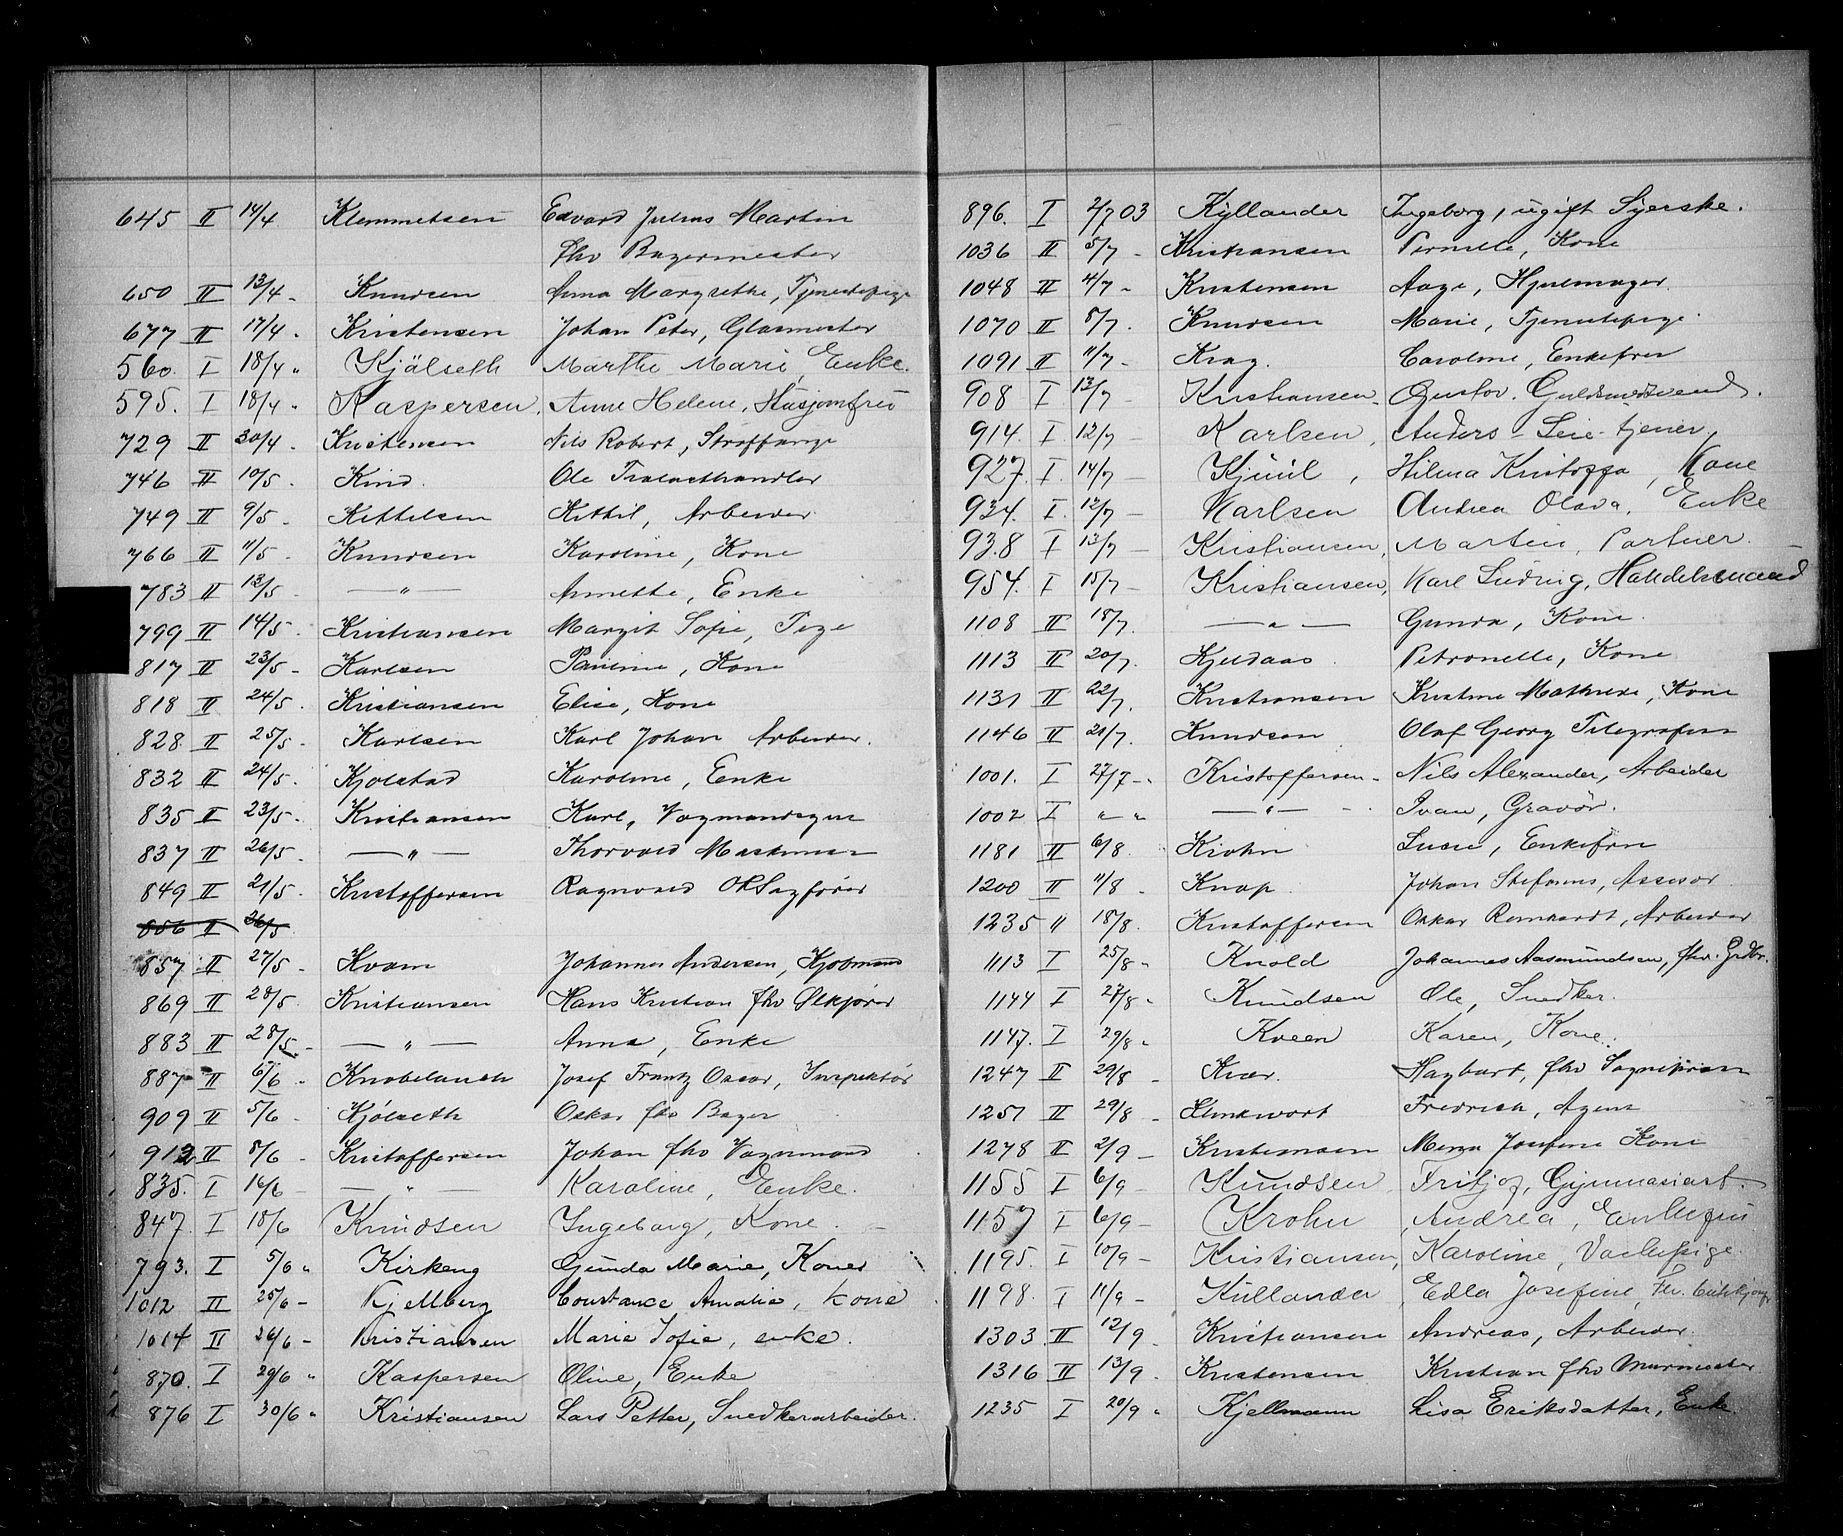 645 II 14/4 Klemmetsen Edvard Julius Martin
fhv Bagermester
650 II 13/4 - Knudsen Anna Margrethe, Tjenestepige
677 II 17/4 - Kristensen Johan Peter, Glasmester
560. I 18/4 " Kjölseth Marthe Marie, Enke.
595. I 18/4 " Kaspersen, Anne Helene, Husjomfru
729 II 30/4 - Kristensen Nils Robert, Straffange
746 II 10/5 - Kind. Ole Tralasthandler
749 II 9/5 - Kittelsen Kittil, Arbeider
766 II 11/5 - Knudsen Karoline, Kone
783 II 13/5 - — " — Annette, Enke
799 II 14/5 - Kristiansen Margit Sofie, Pige
817 II 23/5 - Karlsen Pauline, Kone
818 II 24/5 - Kristiansen Elise, Kone
828 II 25/5 - Karlsen Karl Johan Arbeider.
832 II 24/5 - Kjolstad Karoline, Enke
835 II 23/5 - Kristiansen Karl, Vognmandsgut
837 II 26/5 - — " — Thorvald
849 II 21/5 - Kristoffersen Ragnvald ORSagfører
856 II 26/5
857 II 27/5 - Kvam Johannes Andersen, Kjobmand
869 II 28/5 - Kristiansen Hans Kristian fhv Ølkjører
883 II 28/5 - — " — Anna, Enke
887 II 6/6 - Knobelauch Josef Frantz Oscar, Inspektör
909 II 5/6 - Kjölseth Oskar fhv Bager
912 II 8/6 - Kristoffersen Johan fhv Vognmand
835. I 16/6 - — " — Karoline, Enke.
847. I 18/6 Knudsen Ingeborg, Kone.
793. I 5/6 " Kirkeng Gunda Marie, Kone
1012 II 25/6 - Kjellberg Constance Amalie, kone
1014 II 26/6 - Kristiansen Marie Sofie, enke.
870. I 29/6 " Kaspersen Oline, Enke
876 I 30/6 " Kristiansen Lars Petter, Snedkerarbeider.
896. I 2/7 03 Kyllander Ingeborg, ugift Syerske.
1036 II 5/7 - Kristiansen Pernille, Kone
1048 II 4/7 - Kristensen Aage, Hjulmager.
1070 II 8/7. Knudsen Marie, Tjenestepige.
1091 II 11/7 - Krag. Caroline, Enkefru
908 I 13/7 - Kristiansen - Gustav. Guldsmedsvend.
914. I 12/7 - Karlsen, Anders - Leie-tjener,
927. I. 14/7 - Kjuul, Hilma Kristoffa, Kone
934. I. 12/7 - Karlsen Andrea Olava, Enke
938 I 13/7 - Kristiansen, Martin, Portner.
954. I 15/7 - Kristiansen, Karl Ludvig, Handelsmand
1108 II 18/7. — " — Gunda, Kone.
1113 II 20/7. Kjeldaas. Petronelle, Kone
1131 II 22/7. Kristiansen Kristine Mathilde, Kone
1146 II 21/7. Knudsen Olaf Georg Telegrafist
1001. I 27/7 - " Kristoffersen - Nils Alexander, Arbeider
1002 I " " — " — Ivan, Gravör.
1181 II 6/8. Krohn Lucie, Enkefru
1200 II 11/8 - Knap. Johan Stefanus, Assesor
1235 " 18/8. Kristoffersen Oskar Reinhardt, Arbeider
1113 I 25/8 " Knold Johannes Aasmundsen, fhv. Grdbr.
1144 I 27/8 " Knudsen Ole, Snedker.
1147. I 29/8 " Kveen Karen, Kone.
1247 II 29/8 - Kvær. Hagbart, fhv Sogneprest
1251 II 29/8 - Klinkwort Fredrich, Agent
1278 II 2/9 - Kristensen Josefine Kone
1155 I 6/9 - Knudsen, Fritjof, Gymnasiast.
1157 I 6/9 - Krohn, Andrea, Enkefru
1195. I 10/9 - Kristiansen, Karoline, Vaskepige.
1198. I 11/9 - Kullander, Edla Josefine,
1303 II 12/9. Kristiansen Andreas, Arbeider.
1316 II 13/9. Kristensen Kristian fhv Murmester
1235 I 20/9 " Kjellmann Lisa Eriksdatter, Enke